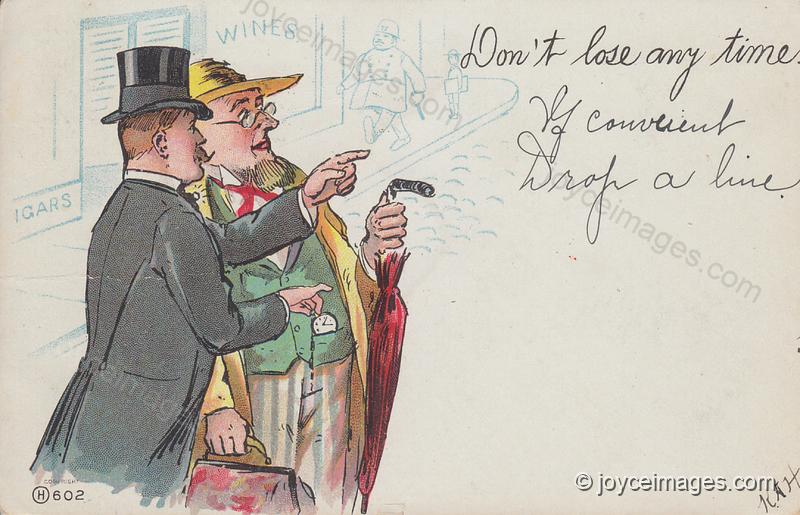 WINES
IGARS
Don't lose any time.
If conveient
Drop a line.
COPYRIGHT
H 602
joyceimages.com
joyceimages.com
joyceimages.com
© joyceimages.com